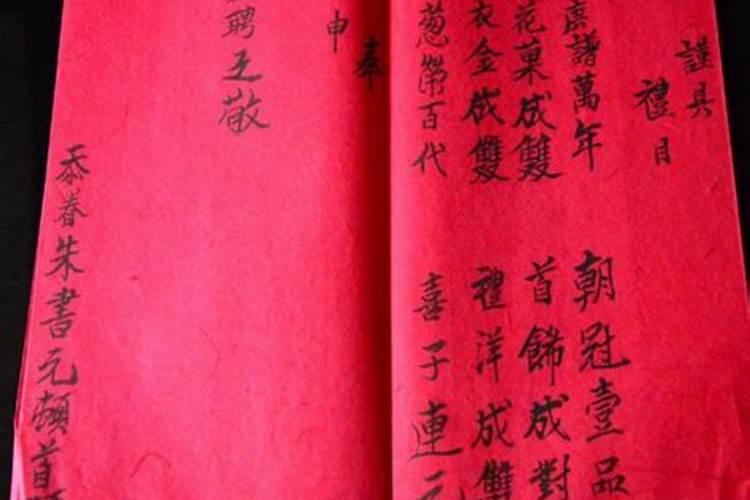 謹具
禮目
庚譜萬年
朝冠壹品
花菓成雙
首餙成對
衣金成雙
禮洋成雙
葱幣百代
喜子連元
奉
申
聘之敬
忝眷朱書元頓首